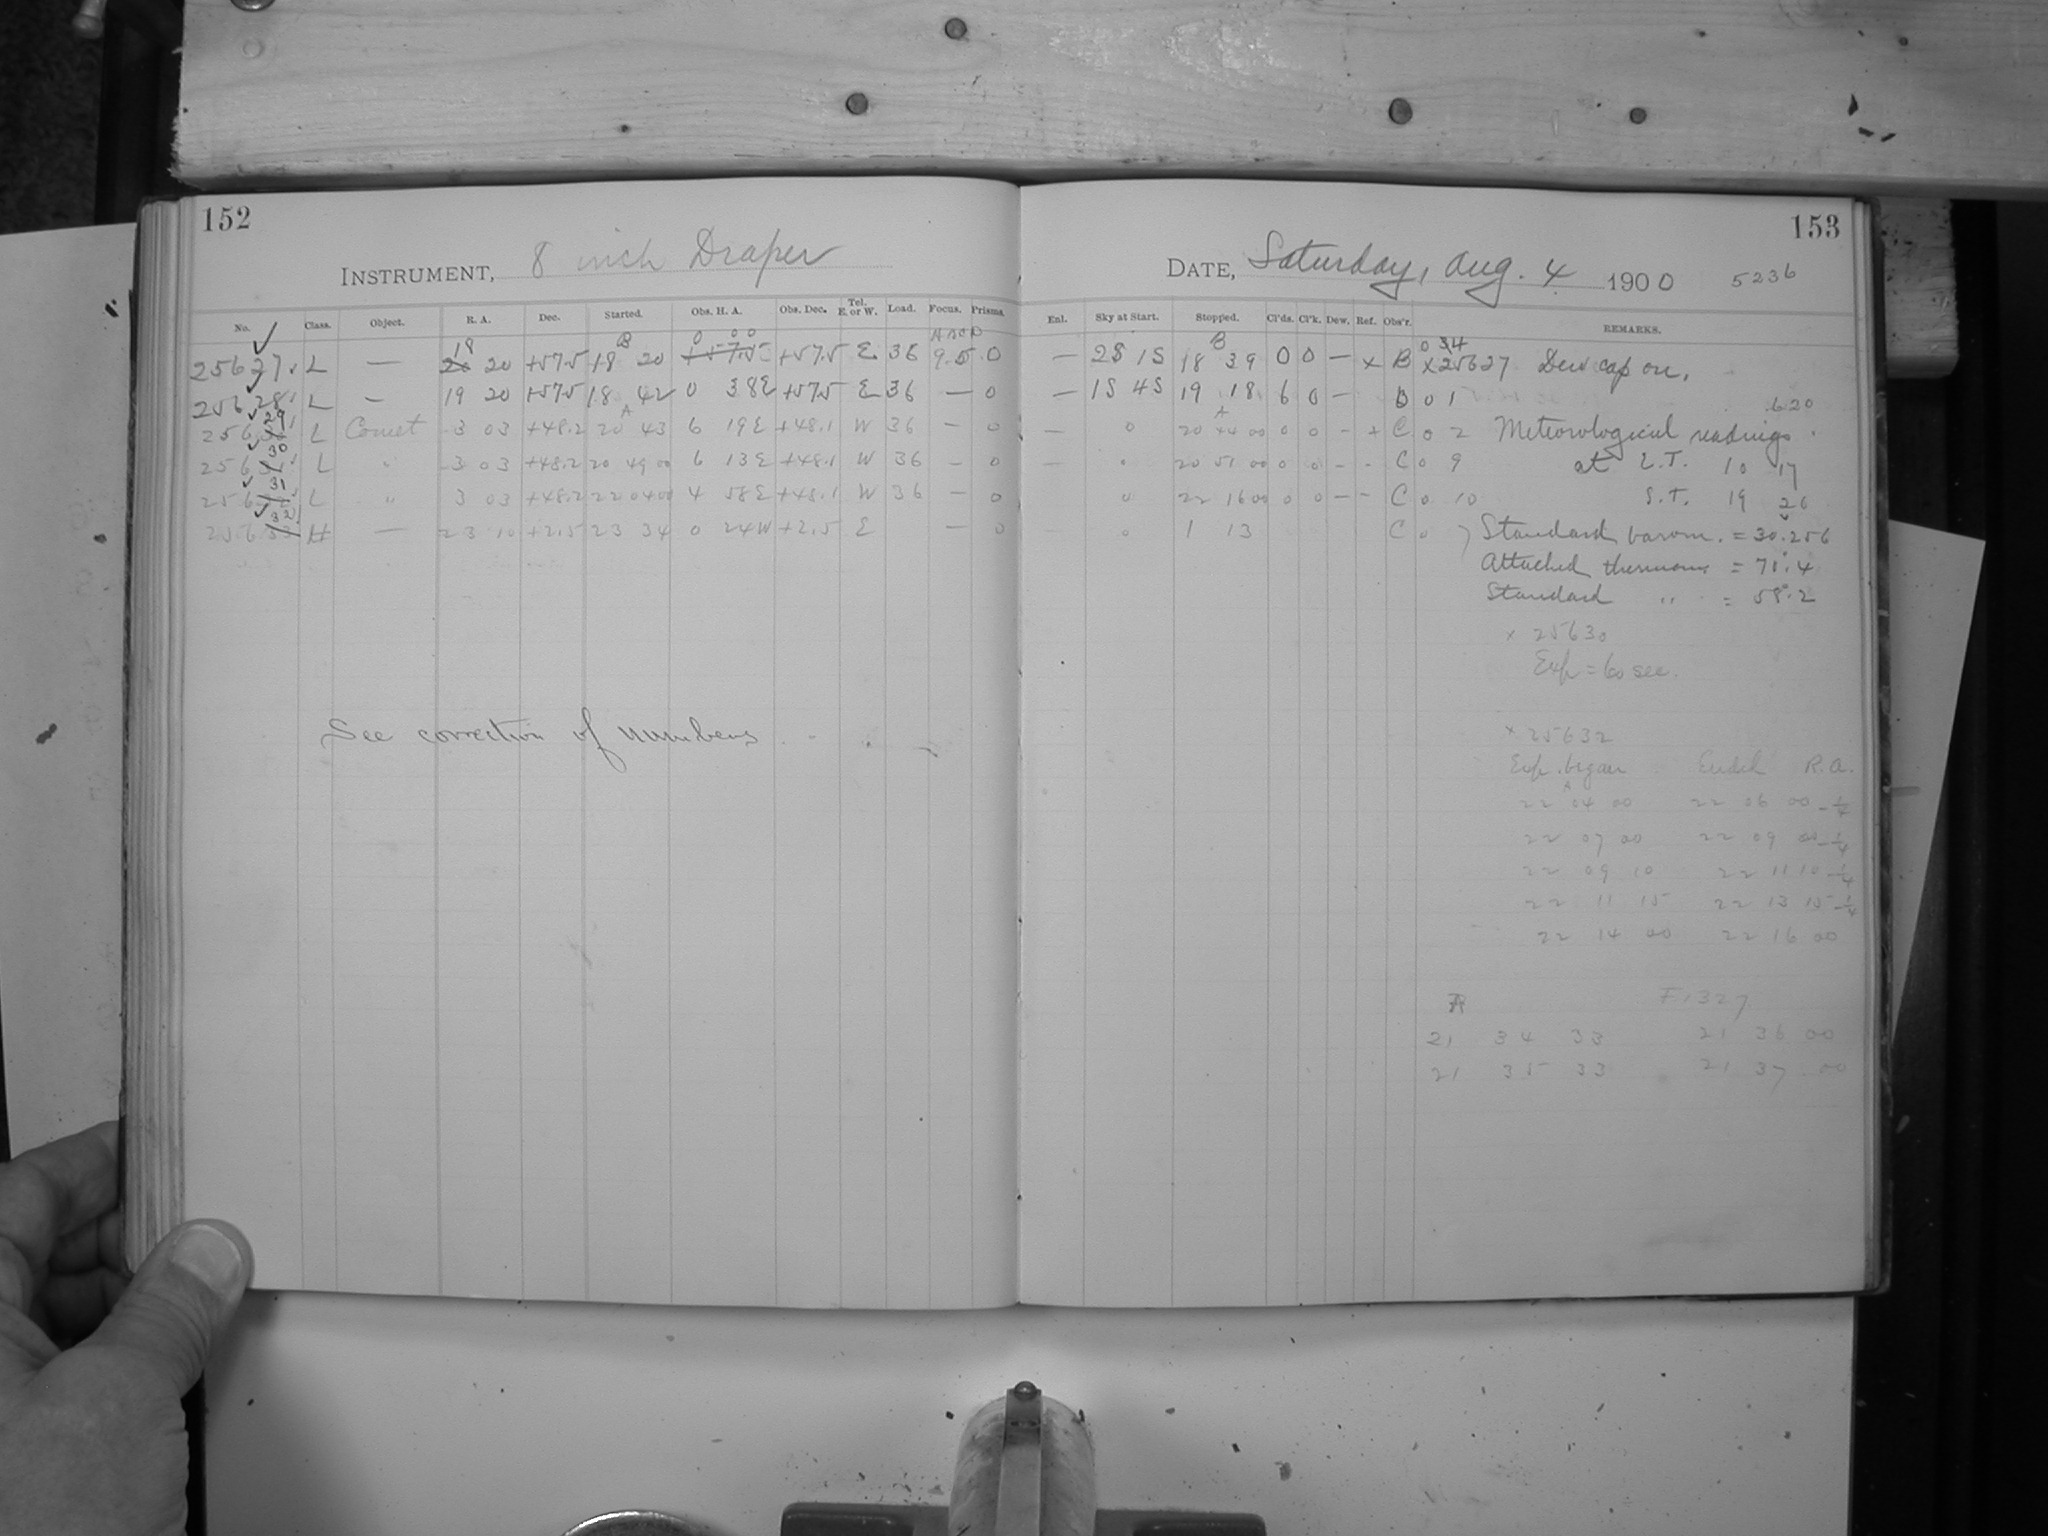 152
INSTRUMENT, 8 inch Draper
No. Class. Object. R. A. Dec. Started. Obs. H. A. Obs. Dec. Tel. E. or W. Load. Focus. Prisms.
25627 L — 18 20 +57.5 B 18 20 0 00 +57.5 E 36 ABCD 9.5 0
25628 L — 19 20 +57.5 18 42 0 38E +57.5 E 36 — 0
25629 L Comet 3 03 +48.2 A 20 43 6 19E +48.1 W 36 — 0
25630 L " 3 03 +48.2 20 49 00 6 13E +48.1 W 36 — 0
25631 L " 3 03 +48.2 22 04 00 4 58E +48.1 W 36 — 0
25632 H — 23 10 +2.5 23 34 0 24W +2.5 E — 0
See correction of numbers
153
DATE, Saturday, Aug. 4 1900 5236
Enl. Sky at Start. Stopped. Cl'ds. Cl'k. Dew. Ref. Obs'r. REMARKS.
— 2S 1S B 18 39 0 0 — x B 0 34 x25627 Dew cap on.
— 1S 4S 19 18 6 0 — B 0 1
— 0 A 20 44 00 0 0 - + C 0 2 Meteorological readings
620
— 0 20 51 00 0 0 - - C 0 9 at L.T. 10 17
0 22 16 00 0 0 — — C 0 10 S.T. 19 26
0 1 13 C 0 Standard barom. = 30.256
Attached thermom = 71.4
Standard " = 58.2
x 25630
Exp = 60 sec.
x 25632
Exp. began Ended R.A.
A 22 04 00 22 06 00 -1/4
22 07 00 22 09 00 -1/4
22 09 10 22 11 10 -1/4
22 11 15 22 13 15 -1/4
22 14 00 22 16 00
F. 1327
21 34 33 21 36 00
21 35 33 21 37 00